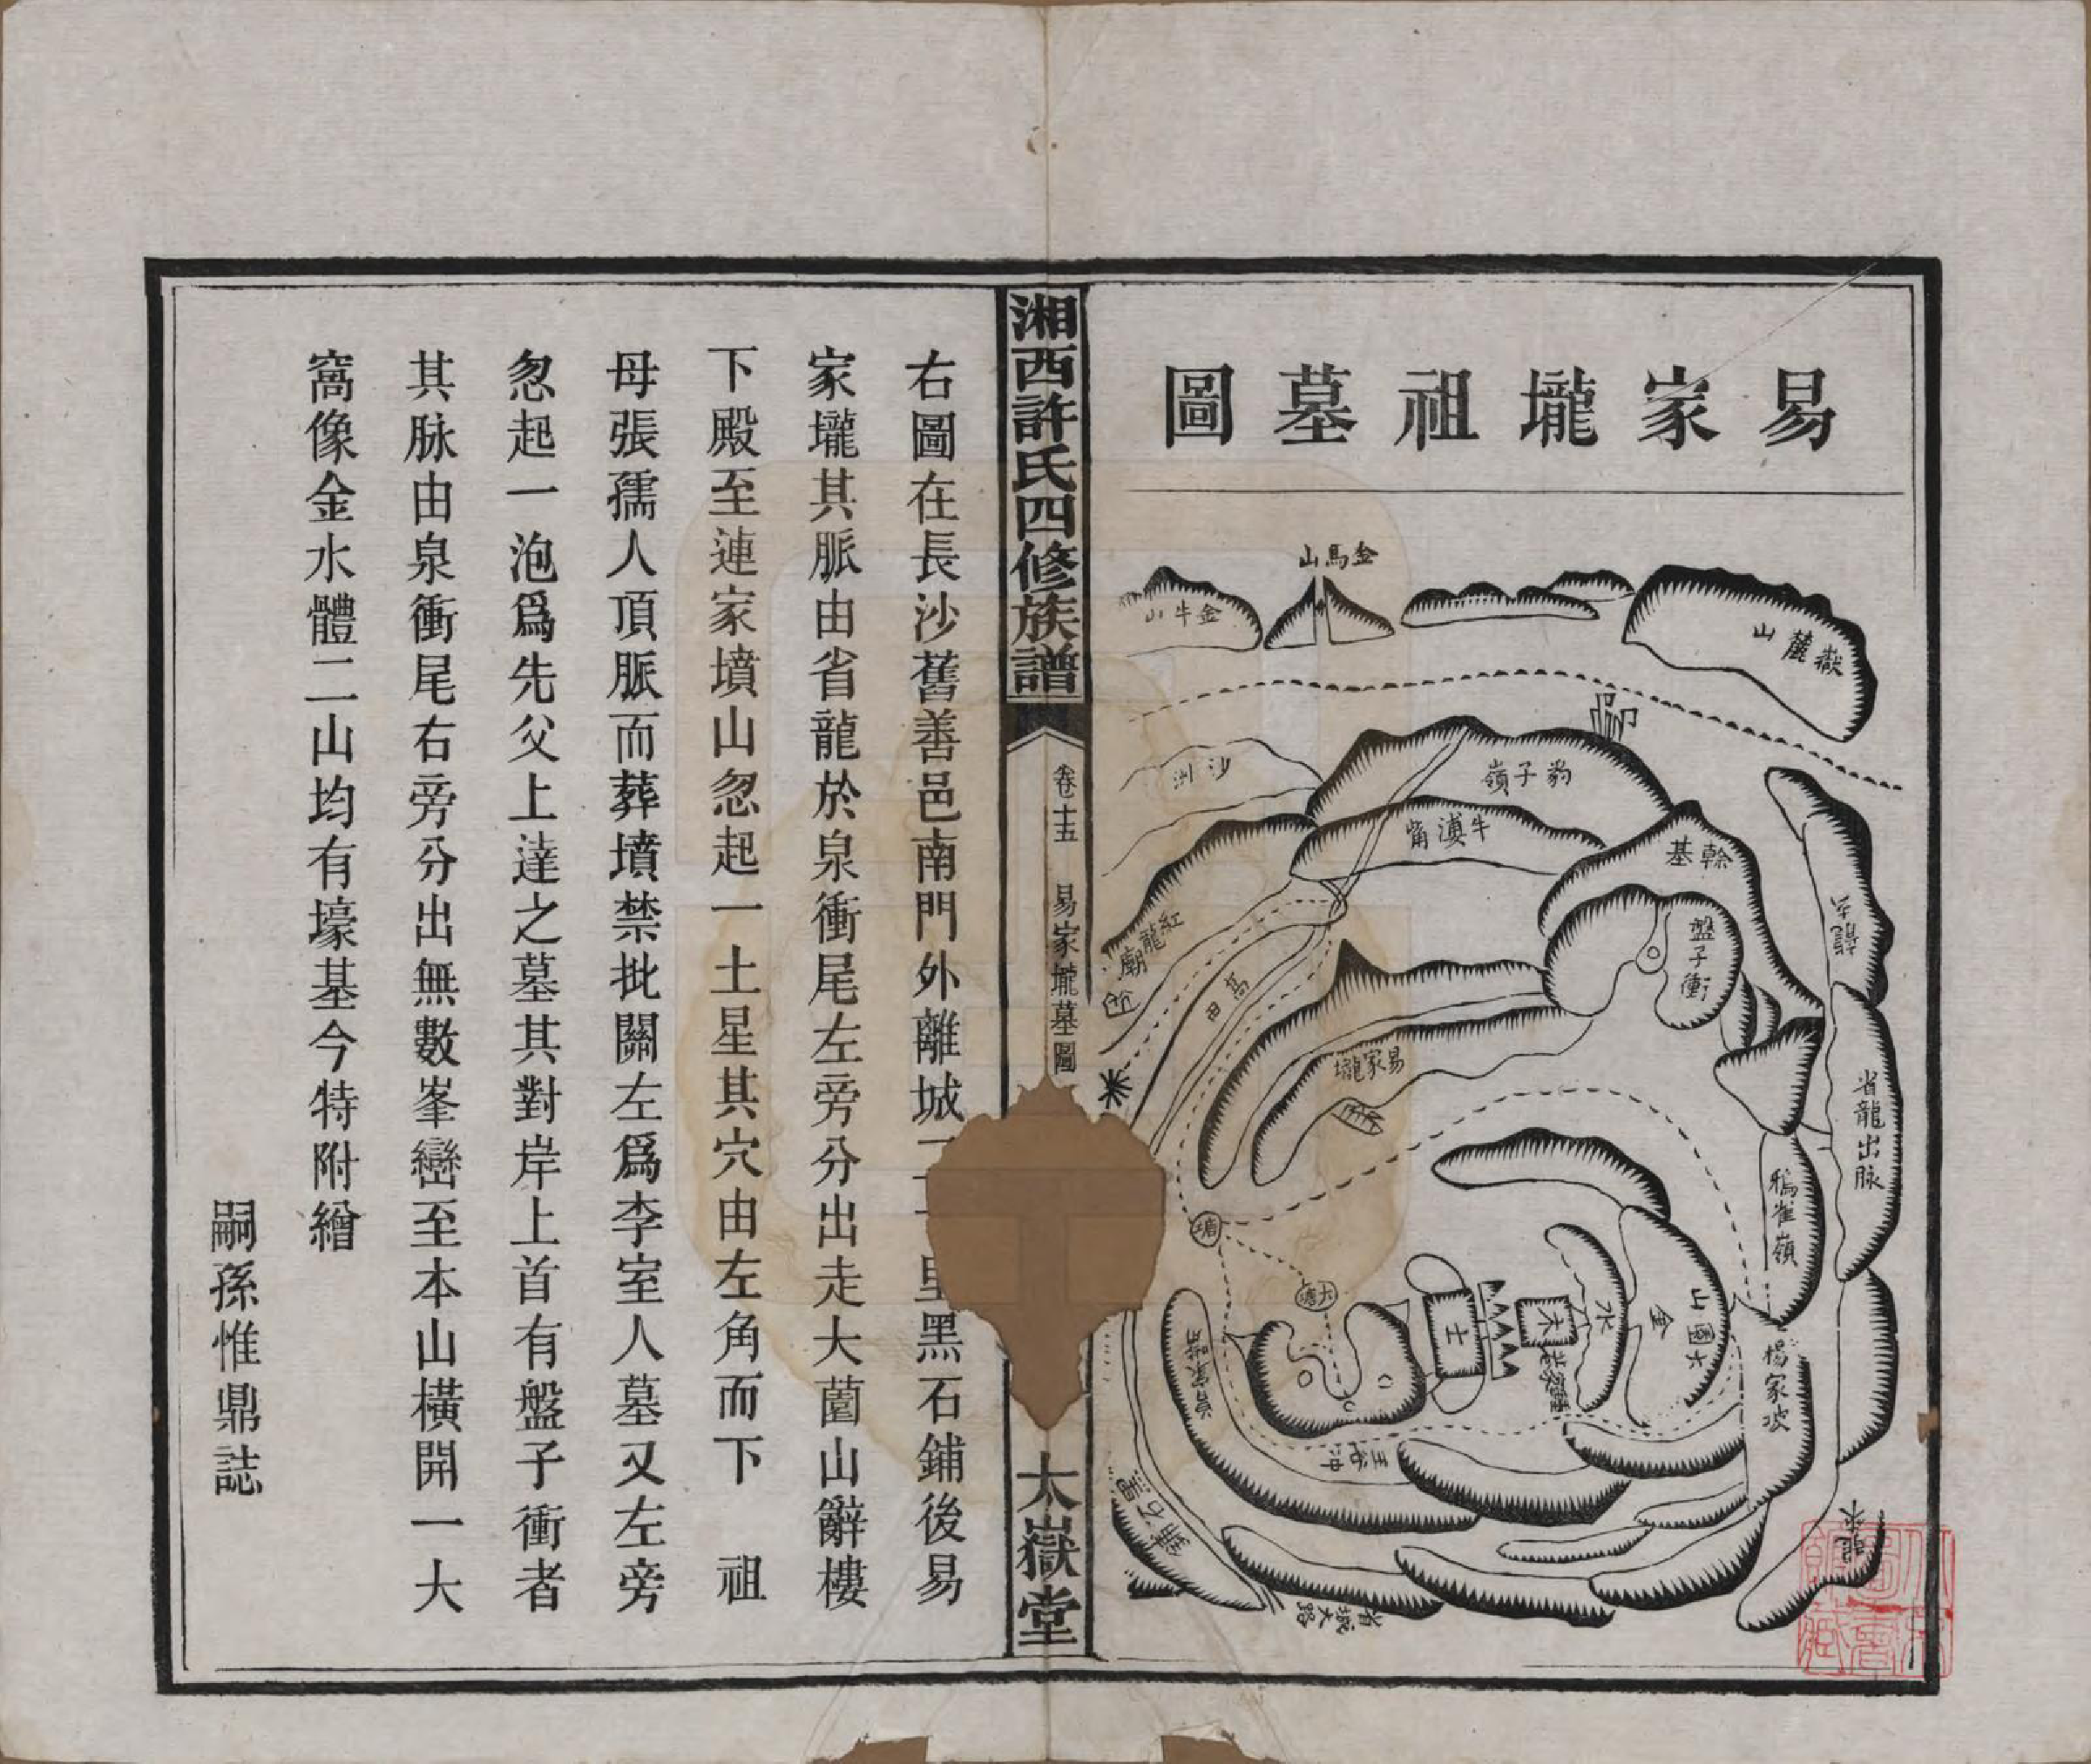 易家壠祖墓圖
金馬山
金牛山
嶽麓山
沙洲
豹子嶺
牛漊甯
幹基
盤子衝
紅龍廟
萬田
易家壠
省龍出脉
鴉雀嶺
塘
大塘
土
木
水
金
大圍山
楊家坡
省城大路
來龍
湘西許氏四修族譜
卷十五
易家壠墓圖
太嶽堂
右圖在長沙舊善邑南門外離城二十里黑石鋪後易
家壠其脈由省龍於泉衝尾左旁分出走大薗山辭樓
下殿至連家墳山忽起一土星其穴由左角而下 祖
母張孺人頂脈而葬墳禁批關左爲李室人墓又左旁
忽起一泡爲先父上達之墓其對岸上首有盤子衝者
其脉由泉衝尾右旁分出無數峯巒至本山橫開一大
窩像金水體二山均有壕基今特附繪
嗣孫惟鼎誌